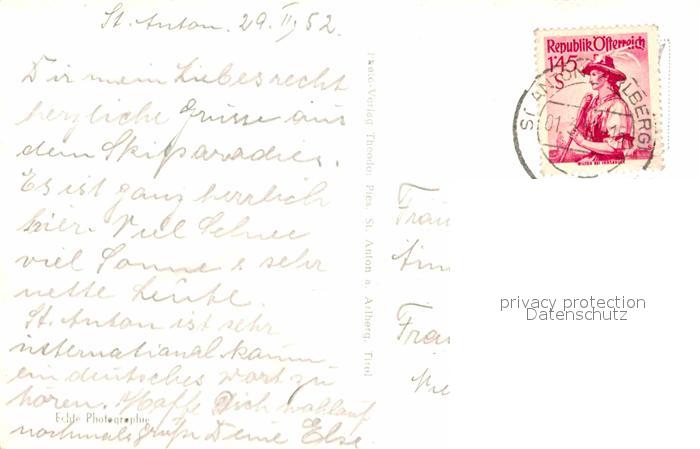 St. Anton. 29. II, 52.
Dir mein Liebes recht
herzliche Grüsse aus
dem Skiparadies.
Es ist ganz herrlich
hier. Viel Schnee
viel Sonne & sehr
nette Leute.
St. Anton ist sehr
international kaum
ein deutsches Wort zu
hören. Hoffe Dich wohlauf
nochmals Grüße Deine Else
Echte Photographie
Photo-Verlag Theodor Pies, St. Anton a. Arlberg, Tirol
Republik Österreich
145
ST. ANTON ARLBERG
01.
WILTEN BEI INNSBRUCK
Frau
Frau
privacy protection
Datenschutz